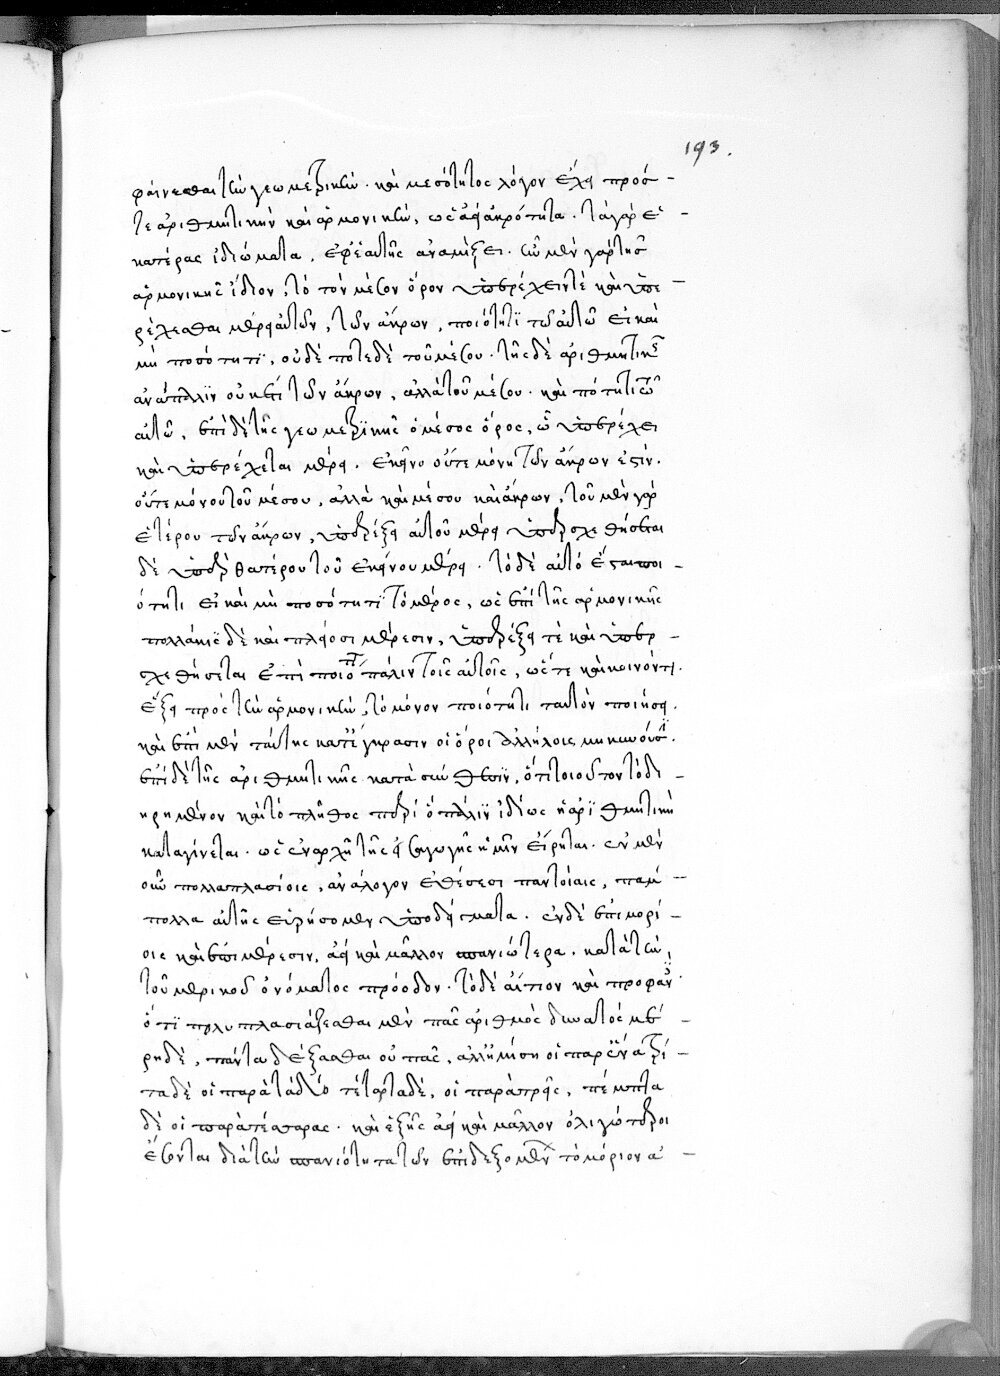 193.
φαίνεσθαι τὴν γεωμετρικὴν. καὶ μεσότητος λόγον ἔχει πρός
τε ἀριθμητικὴν καὶ ἁρμονικὴν, ὡς εἰς ἀκρότητα. τὰ γὰρ ἑ
κατέρας ἰδιώματα, ἐφ' ἑαυτῆς ἀναμίξει. ὂν μὲν γὰρ τῆς
ἁρμονικῆς ἴδιον, τὸ τὸν μέσον ὅρον ὑπερέχειν τὲ καὶ ὑπε
ρέχεσθαι μέρει αὐτῶν, τῶν ἄκρων, ποιότητι τῶ αὐτῶ εἰ καὶ
μὴ ποσότητι, οὐδέποτε δὲ τοῦ μέσου. τῆς δὲ ἀριθμητικῆς
ἀνάπαλιν οὐκ ἐπὶ τῶν ἄκρων, ἀλλὰ τοῦ μέσου. καὶ ποιότητι τῶ
αὐτῶ, ἐπὶ δὲ τῆς γεωμετρικῆς ὁ μέσος ὅρος, ὧ ὑπερέχει
καὶ ὑπερέχεται μέρει. ἐκεῖνο οὔτε μόνη τῶν ἄκρων ἐστίν.
οὔτε μόνου τοῦ μέσου, ἀλλὰ καὶ μέσου καὶ ἄκρων, τοῦ μὲν γὰρ
ἑτέρου τῶν ἄκρων, ὑπερέξει αὐτοῦ μέρει ὑπερσχεθήσεται
δὲ ὑπὸ θατέρου τοῦ ἐκείνου μέρει. τὸ δὲ αὐτό ἔσται ποι
ότητι εἰ καὶ μὴ ποσότητι τὸ μέρος, ὡς ἐπὶ τῆς ἁρμονικῆς
πολλάκις δὲ καὶ πλείοσι μέρεσιν, ὑπερέξει τὲ καὶ ὑπερ
σχεθήσεται ἐπὶ ποιότητι πάλιν τοῖς αὐτοῖς, ὥστε καὶ κοινόν τι
ἕξει πρὸς τὴν ἁρμονικὴν, τὸ μόνον ποιότητι ταὐτὸν ποιήσει.
καὶ ἐπὶ μὲν ταύτης κατ' ἔγκρασιν οἱ ὅροι ἀλλήλοις μηκωοῦσι.
ἐπὶ δὲ τῆς ἀριθμητικῆς κατὰ σύνθεσιν, ὅτι τοιοῦτον τὸ δι
ῃρημένον καὶ τὸ πλῆθος περὶ ὃ πάλιν ἰδίως ἡ ἀριθμητικὴ
καταγίνεται. ὡς ἐν ἀρχῆ τῆς εἰσαγωγῆς ἡμῖν εἴρηται. ἐν μὲν
οὖν πολλαπλασίοις, ἀνάλογον ἐθέσεσι παντοίαις, πάμ
πολλα αὐτῆς εὑρήσομεν ὑποδείγματα. ἐν δὲ ἐπιμορί
οις καὶ ἐπιμέρεσιν, ἀεὶ καὶ μᾶλλον σπανιώτερα, κατὰ τὴν
τοῦ μερικοῦ ὀνόματος πρόοδον. τὸ δὲ αἴτιον καὶ προφανὲς
ὅτι πολυπλασιάζεσθαι μὲν πᾶς ἀριθμὸς δυνατός μέ
ρη δὲ, πάντα δέξασθαι οὐ πᾶς, ἀλλ' ἡμίση οἱ παρ' ἕνα τρί
τα δὲ οἱ παρὰ τὰ δύο τέταρτα δὲ, οἱ παρὰ τρεῖς, πέμπτα
δὲ οἱ παρὰ τέσσαρας. καὶ ἑξῆς ἀεὶ καὶ μᾶλλον ὀλιγώτεροι
ἔσονται διὰ τὴν σπανιότητα τῶν ἐπιδεξομένων τὸ μόριον α